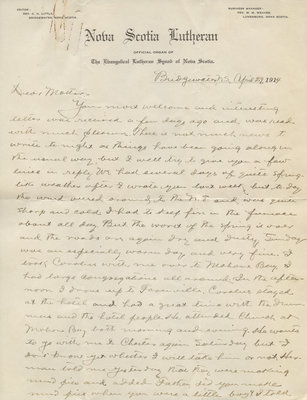 EDITOR
REV. C. H. LITTLE,
BRIDGEWATER, NOVA SCOTIA.
BUSINESS MANAGER:
REV. W. M. WEAVER,
LUNENBURG, NOVA SCOTIA.
Nova Scotia Lutheran
OFFICIAL ORGAN OF
The Evangelical Lutheran Synod of Nova Scotia.
Bridgewater, N.S., April 29, 1914
Dear Mother:
Your most welcome and interesting
letter was received a few days ago and was read
with much pleasure. There is not much news to
write to-night as things have been going along in
the usual way but I will try to give you a few
lines in reply. We had several days of quite spring-
like weather after I wrote you last week but to-day
the wind veered around to the N.E. and was quite
sharp and cold. I had to keep fire in the furnace
about all day. But the worst of the spring is over
and the roads are again dry and dusty. Sunday
was an especially warm day and very fine. I
took with me over to Mahone Bay. I
had large congregations all around. In the after-
noon I drove up to stayed
at the hotel and had a great time with the drum-
mers and the hotel people. He attended Church at
Mahone Bay both morning and evening. He wants
to go with me to Chester again Saturday but I
don't know yet whether I will take him or not. Her-
man told me yesterday that they were making
mud pies and added, Father did you make
mud pies when you were a little boy? I told